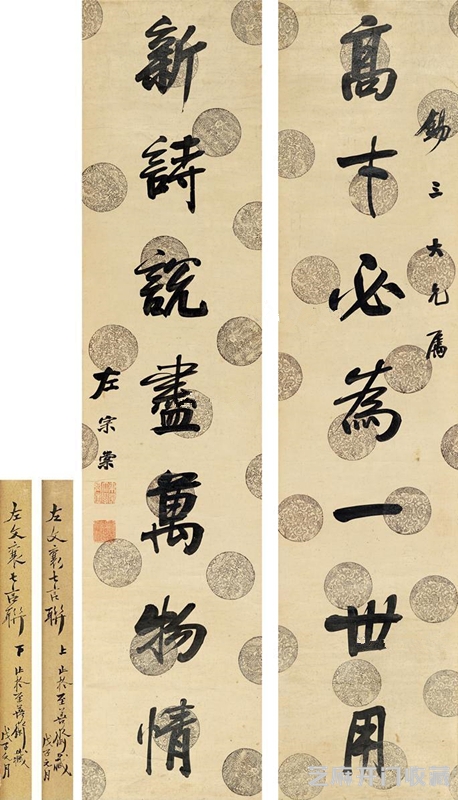 錫三大兄属
高才必為一世用
新詩說盡萬物情
左宗棠
左文襄七言聯 上 止於至善齋藏
戊子元月
左文襄七言聯 下 止於至善齋藏
戊子元月